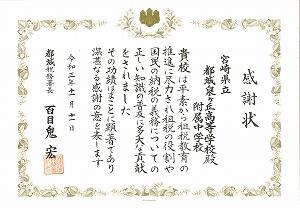 感謝状
宮崎県立
都城泉ヶ丘高等学校
附属中学校
殿
貴校は平素から租税教育の
推進に尽力され租税の役割や
国民の納税の義務についての
正しい知識の普及に多大な貢献
をされました
その功績はまことに顕著であり
深甚なる感謝の意を表します
令和三年十一月十一日
都城税務署長
百目鬼 宏